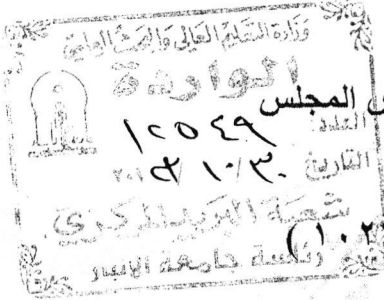 وزارة التعليم العالي والبحث العلمي
الواردة
المجلس
العدد: ١٢٥٤٩
التاريخ ٣٠/١٠/
شعبة البريد المركزي
رئاسة جامعة الانبار